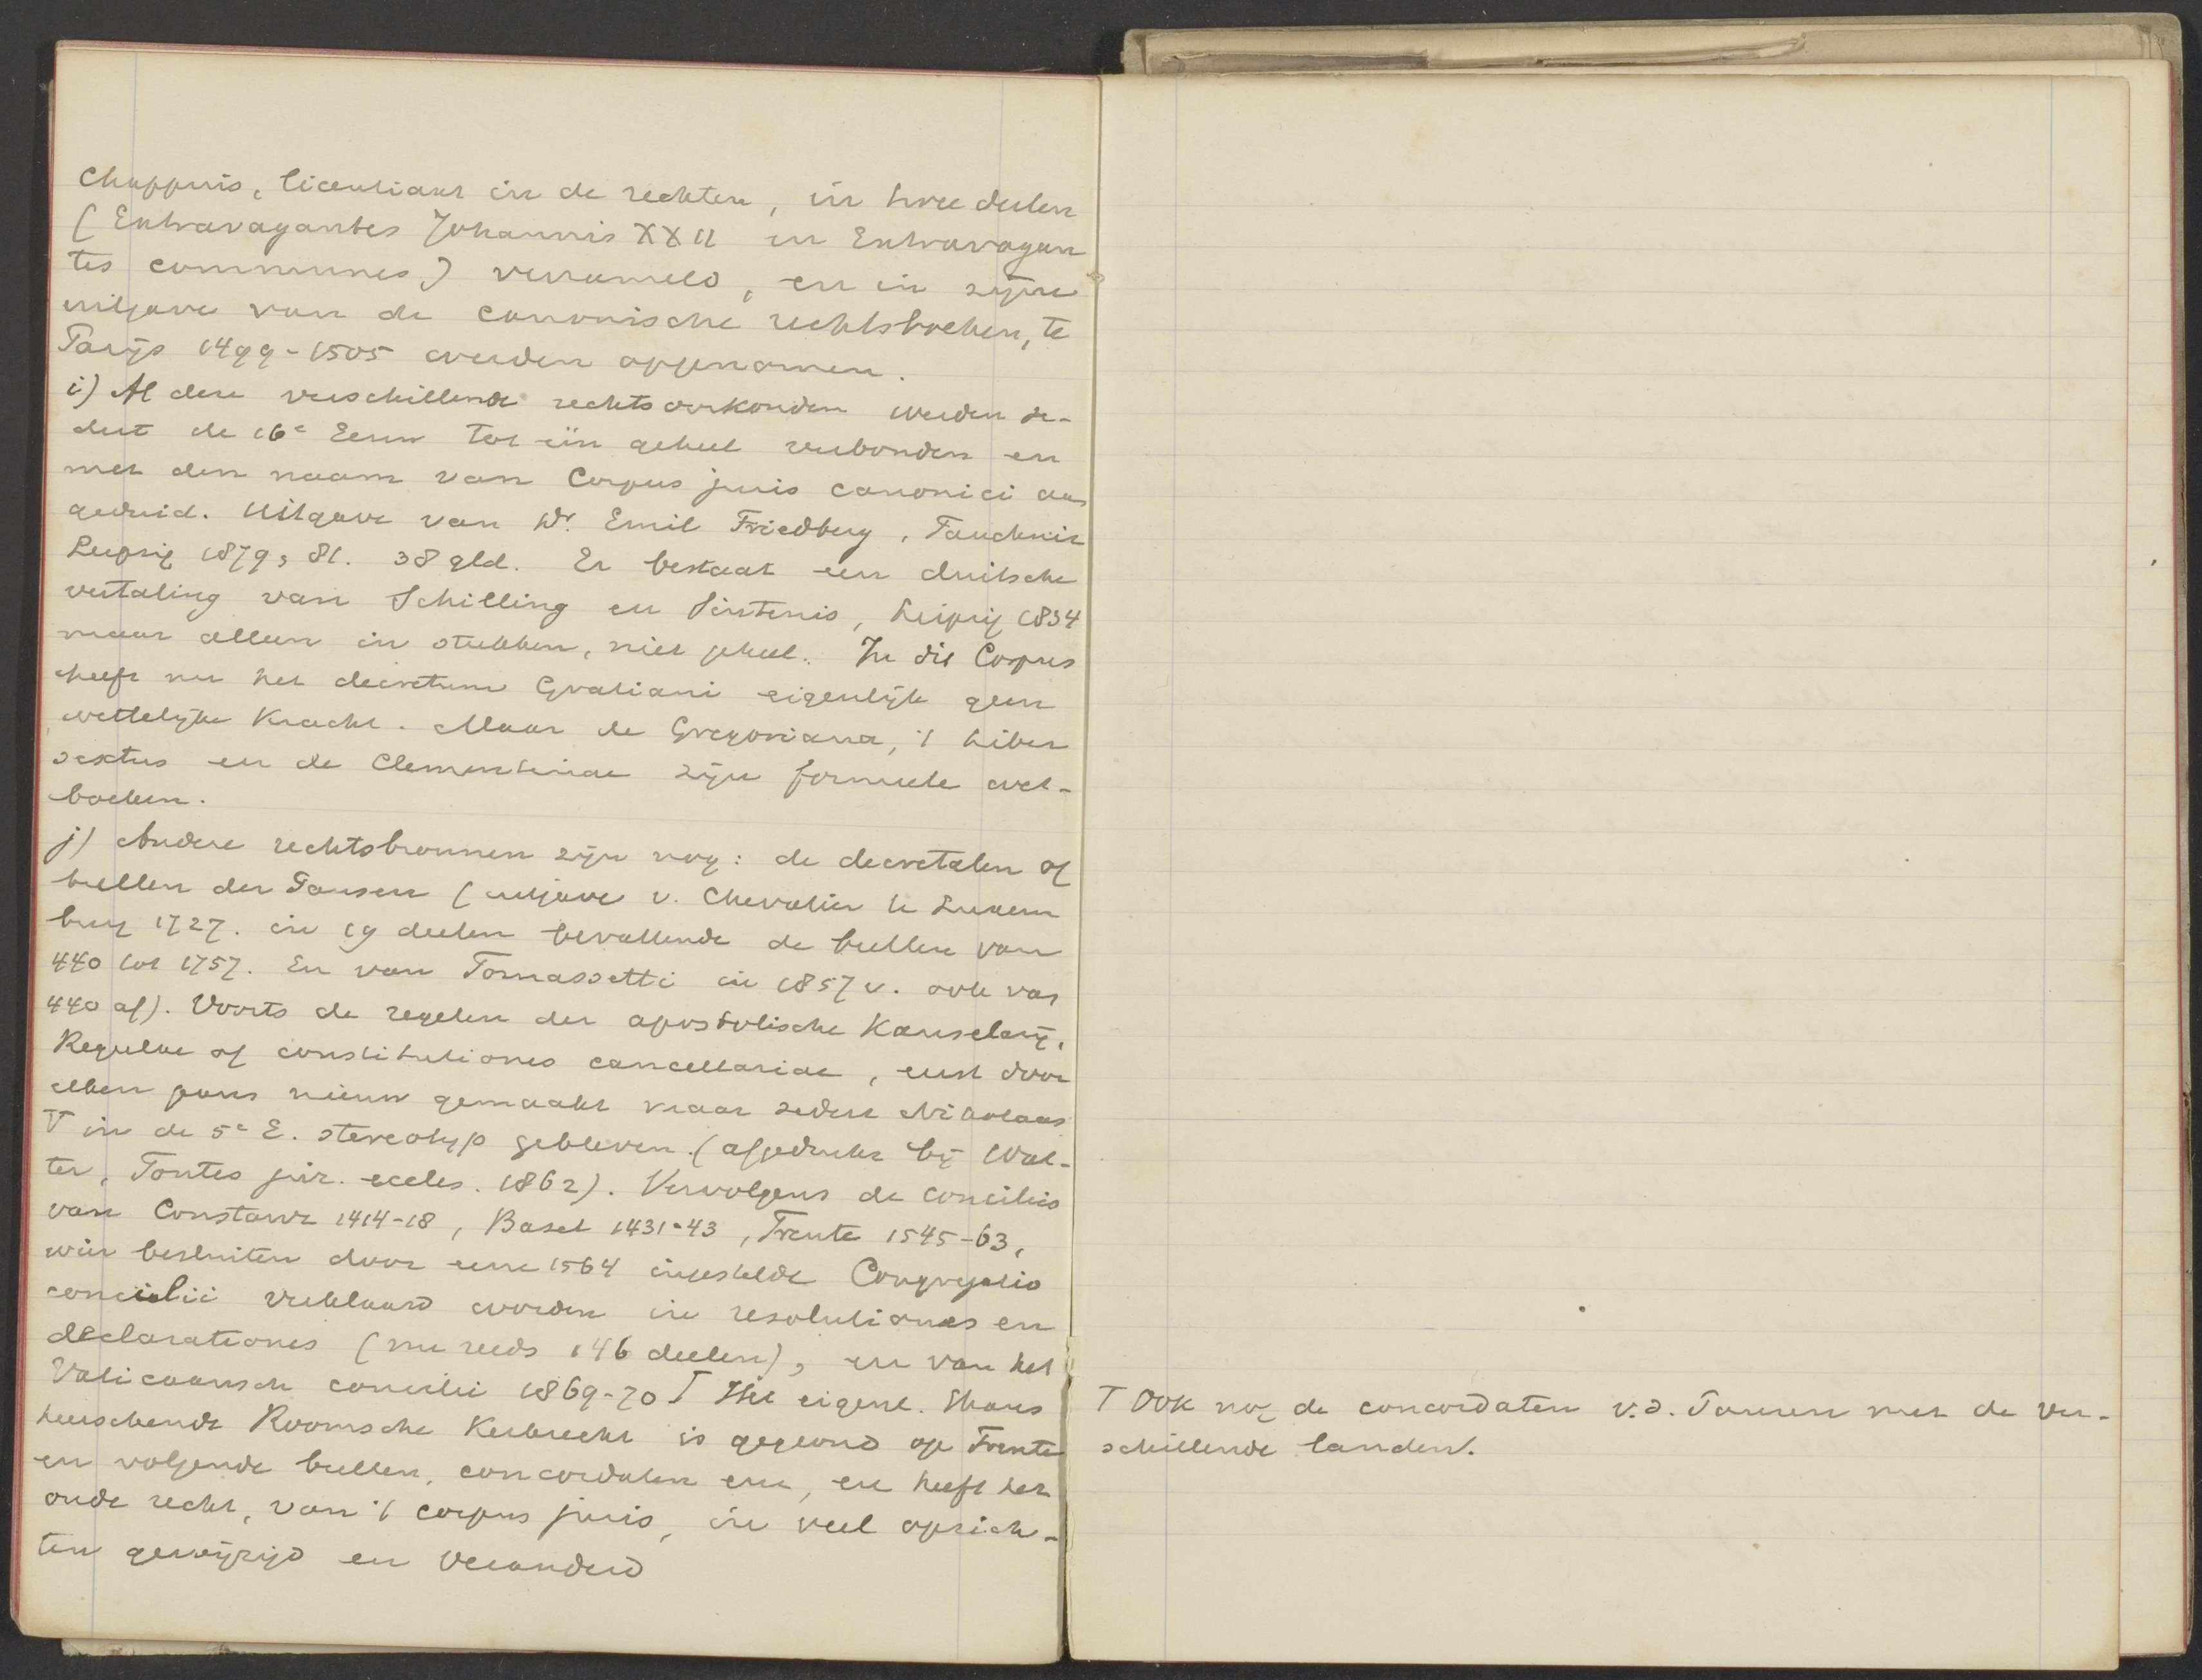 Chappuis, licentiaat in de rechten, in twee deelen
(Extravagantes Johannis XXII en Extravagan
tes communes) verzameld, en in zijne
uitgave van de canonische rechtsboeken, te
Parijs 1499-1505 werden opgenomen.
i) Al deze verschillende rechtsoorkonden werden se-
dert de 16e Eeuw tot één geheel verbonden en
met den naam van Corpus juris canonici aan
geduid. Uitgave van Dr. Emil Friedberg, Tauchnitz
Leipzig 1879, 81. 38 gld. Er bestaat een duitsche
vertaling van Schilling en Sintenis, Leipzig 1834
maar alleen in stukken, niet geheel. In dit Corpus
heeft nu het decretum Gratiani eigenlijk geen
wettelijke kracht. Maar de Gregoriana, 't Liber
sextus en de Clementinae zijn formeele wet-
boeken.
j) Andere rechtsbronnen zijn nog: de decretalen of
bullen der Pausen (uitgave v. Chevalier te Luxem
burg 1727. in 19 deelen bevattende de bullen van
440 tot 1757. En van Tomassetti in 1857 v. ook van
440 af). Voorts de regelen der apostolische Kanselarij,
Regulae of constitutiones cancellariae, eerst door
elken paus nieuw gemaakt maar sedert Nikolaas
V in de 5e E. stereotyp gebleven. (afgedrukt bij Wal-
ter, Fontes jur. eccles. 1862). Vervolgens de conciliis
van Constanz 1414-18, Basel 1431-43, Trente 1545-63,
wier besluiten door eene 1564 ingestelde Congregatio
concilii verklaard worden in resolutiones en
declarationes (nu reeds 146 deelen), en van het
Vaticaansch concilie 1869-70 T Het eigenl. thans
heerschende Roomsche Kerkrecht is gegrond op Trente
en volgende bullen, concordaten enz, en heeft het
oude recht, van 't corpus juris, in veel opzich-
ten gewijzigd en veranderd
T Ook nog de concordaten v.d. Pausen met de ver-
schillende landen.